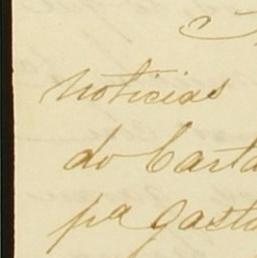 noticias
do Carta
pa gasta